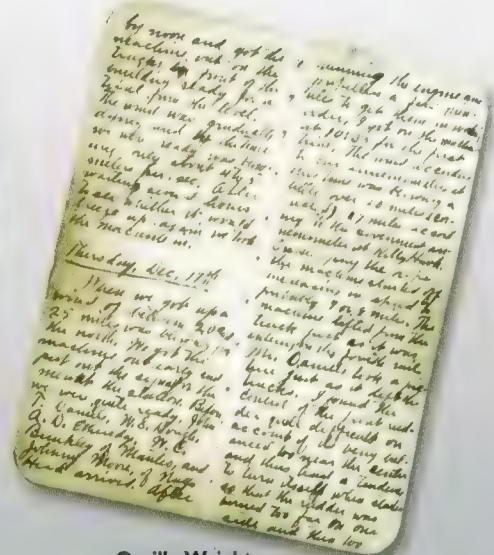 by noon and got the
machine out on the
tracks in front of the
building ready for a
trial from the level.
The wind was gradually
dying and by the time
we were ready was blow-
ing only about
meters per sec. After
waiting several hours
to see whether it would
breeze up again we took
the machine in.
Thursday, Dec. 17th
When we got up a
wind of between 20 and
25 miles was blowing from
the north. We got the
machine out early and
put out the signal for the
men at the station. Before
we were quite ready, John
T. Daniels, W. S. Dough,
A. D. Etheridge, W. C.
Brinkley of Manteo, and
Johnny Moore, of Nags
Head arrived. After
running the engine and
propellers a few min-
utes to get them in work-
ing order, I got on the machine
at 10:35 for the first
trial. The wind according
to our anemometers at
this time was blowing a
little over 20 miles (cor-
rected) 27 miles accord-
ing to the government ane-
mometer at Kitty Hawk.
On slipping the rope
the machine started off
increasing in speed to
probably 7 or 8 miles. The
machine lifted from the
truck just as it was
entering on the fourth rail.
Mr. Daniels took a pic-
ture just as it left the
tracks. I found the
control of the front rud-
der quite difficult on
account of its being bal-
anced too near the center
and thus had a tendency
to turn itself when started
so that the rudder was
turned too far on one
side and then too